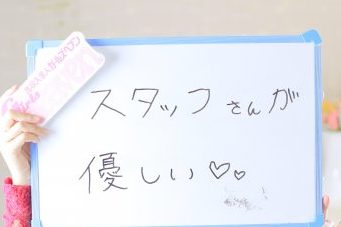 スタッフさんが
優しい♡♡